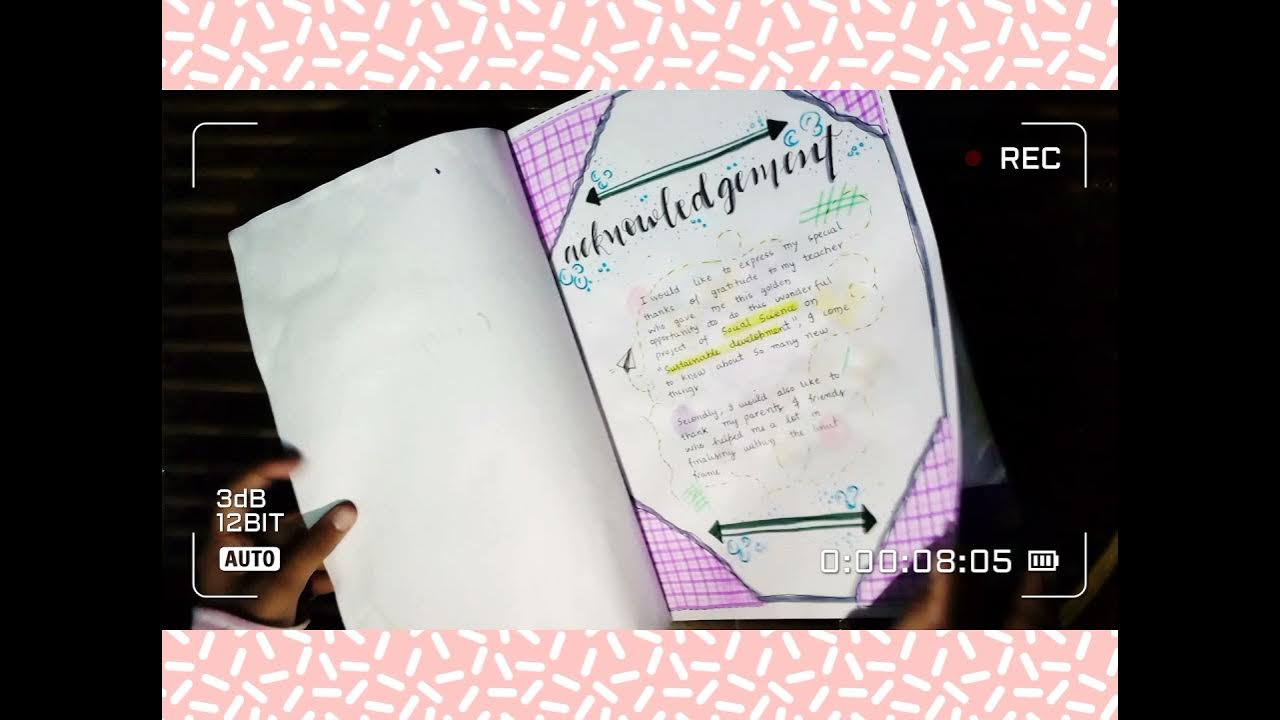 REC
acknowledgement
I would like to express my special
thanks of gratitude to my teacher
who gave me this golden
opportunity to do this wonderful
project of Social Science on
"Sustainable development", I come
to know about so many new
things
Secondly, I would also like to
thank my parents & friends
who helped me a lot in
finalising within the limit
frame
3dB
12BIT
AUTO
0:00:08:05